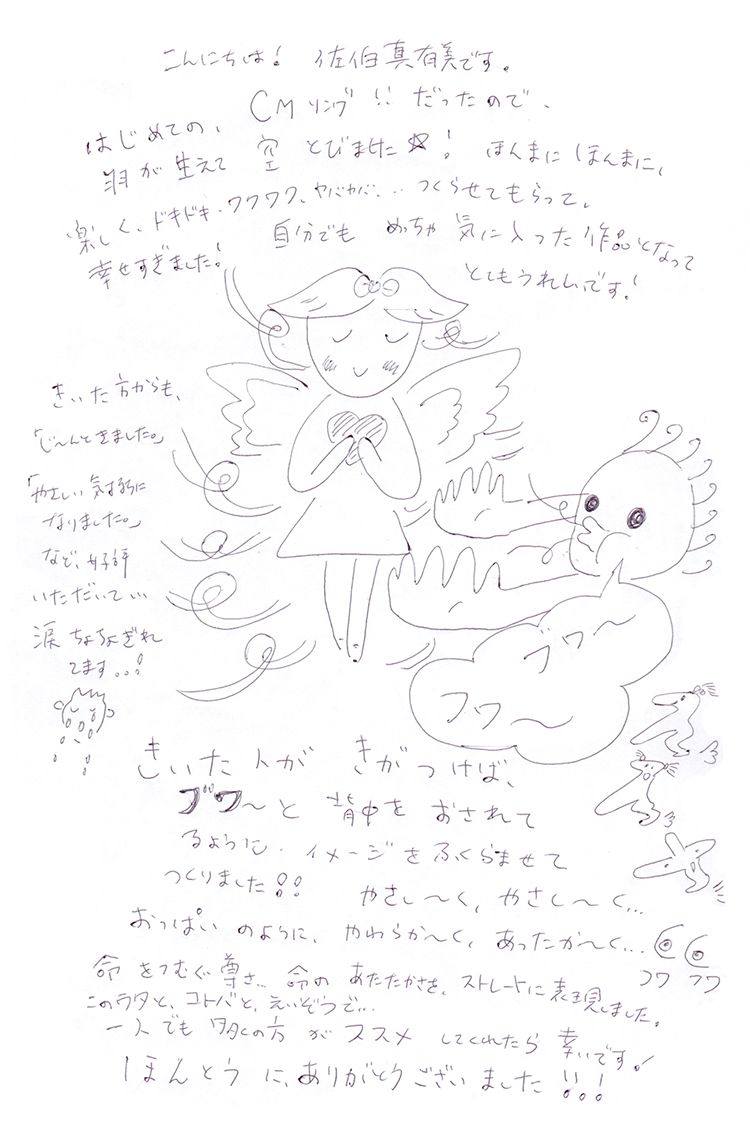 こんにちは! 佐伯真有美です。
はじめての、CMソング!! だったので、
羽が生えて 空 とびました☆! ほんまにほんまに、
楽しく、ドキドキ・ワクワク、ヤバヤバ... つくらせてもらって、
幸せすぎました!
自分でも めっちゃ 気に入った作品となって
とてもうれしいです!
きいた方からも、
「じ〜んときました。」
「やさしい気持ちに
なりました。」
など、好評
いただいて...
涙ちょちょぎれ
てます...!
ブワ〜
フワ〜
きいた人が きがつけば、
ブワ〜と 背中を おされて
るように・イメージをふくらませて
つくりました!!
やさし〜く、やさし〜く...
おっぱいのように、やわらか〜く、あったか〜く...
フワ フワ
命をつむぐ尊さ... 命の あたたかさを、ストレートに表現しました。
このウタと、コトバと、えいぞうで...
一人でも 多くの方 が ススメ してくれたら 幸いです!
ほんとうに、ありがとうございました!!!